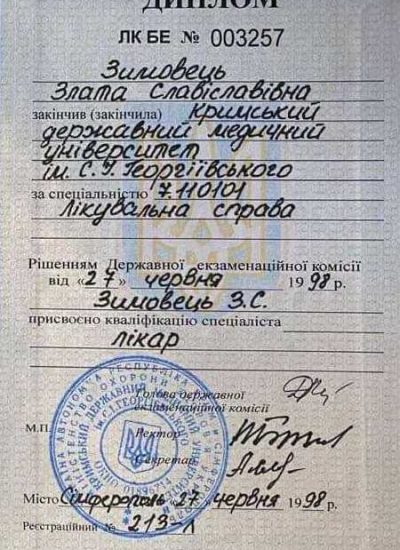 ДИПЛОМ
ЛК ВЕ № 003257
Зимовець
Злата Славіславівна
закінчив (закінчила) Кримський
державний медичний
університет
ім. С.І. Георгіївського
за спеціальністю 7.110101
Лікувальна справа
Рішенням Державної екзаменаційної комісії
від «27» червня 1998 р.
Зимовець З.С.
присвоєно кваліфікацію спеціаліста
лікар
Голова державної
екзаменаційної комісії
М.П.
Ректор
Секретар
Місто Сімферополь «27» червня 1998 р.
Реєстраційний № 213-л